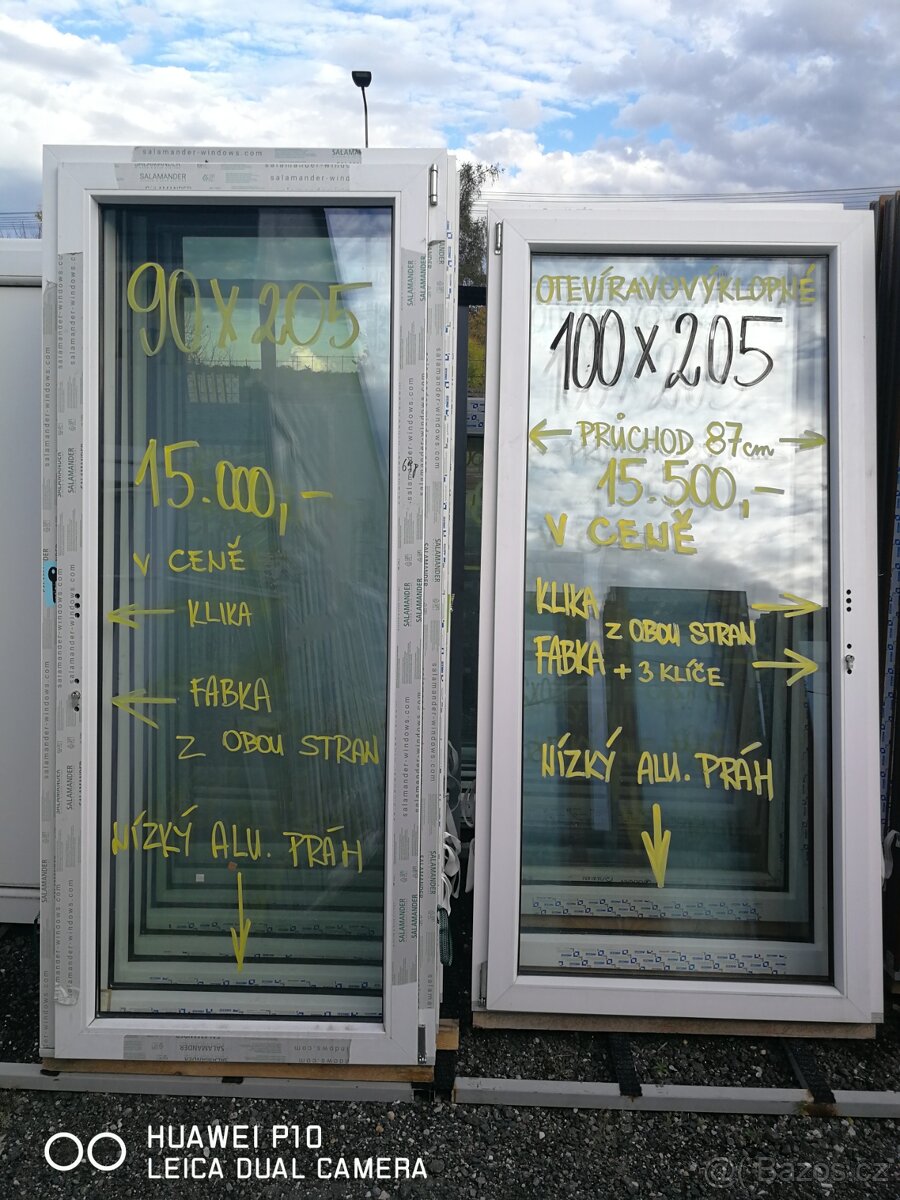 salamander-windows.com SALAMA
SALAMANDER
90 x 205
15.000,-
V CENĚ
KLIKA
FABKA
Z OBOU STRAN
NÍZKÝ ALU. PRÁH
SALAMANDER
OTEVÍRAVOVÝKLOPNÉ
100 x 205
PRŮCHOD 87cm
15.500,-
V CENĚ
KLIKA
Z OBOU STRAN
FABKA + 3 KLÍČE
NÍZKÝ ALU. PRÁH
HUAWEI P10
LEICA DUAL CAMERA
Bazos.cz